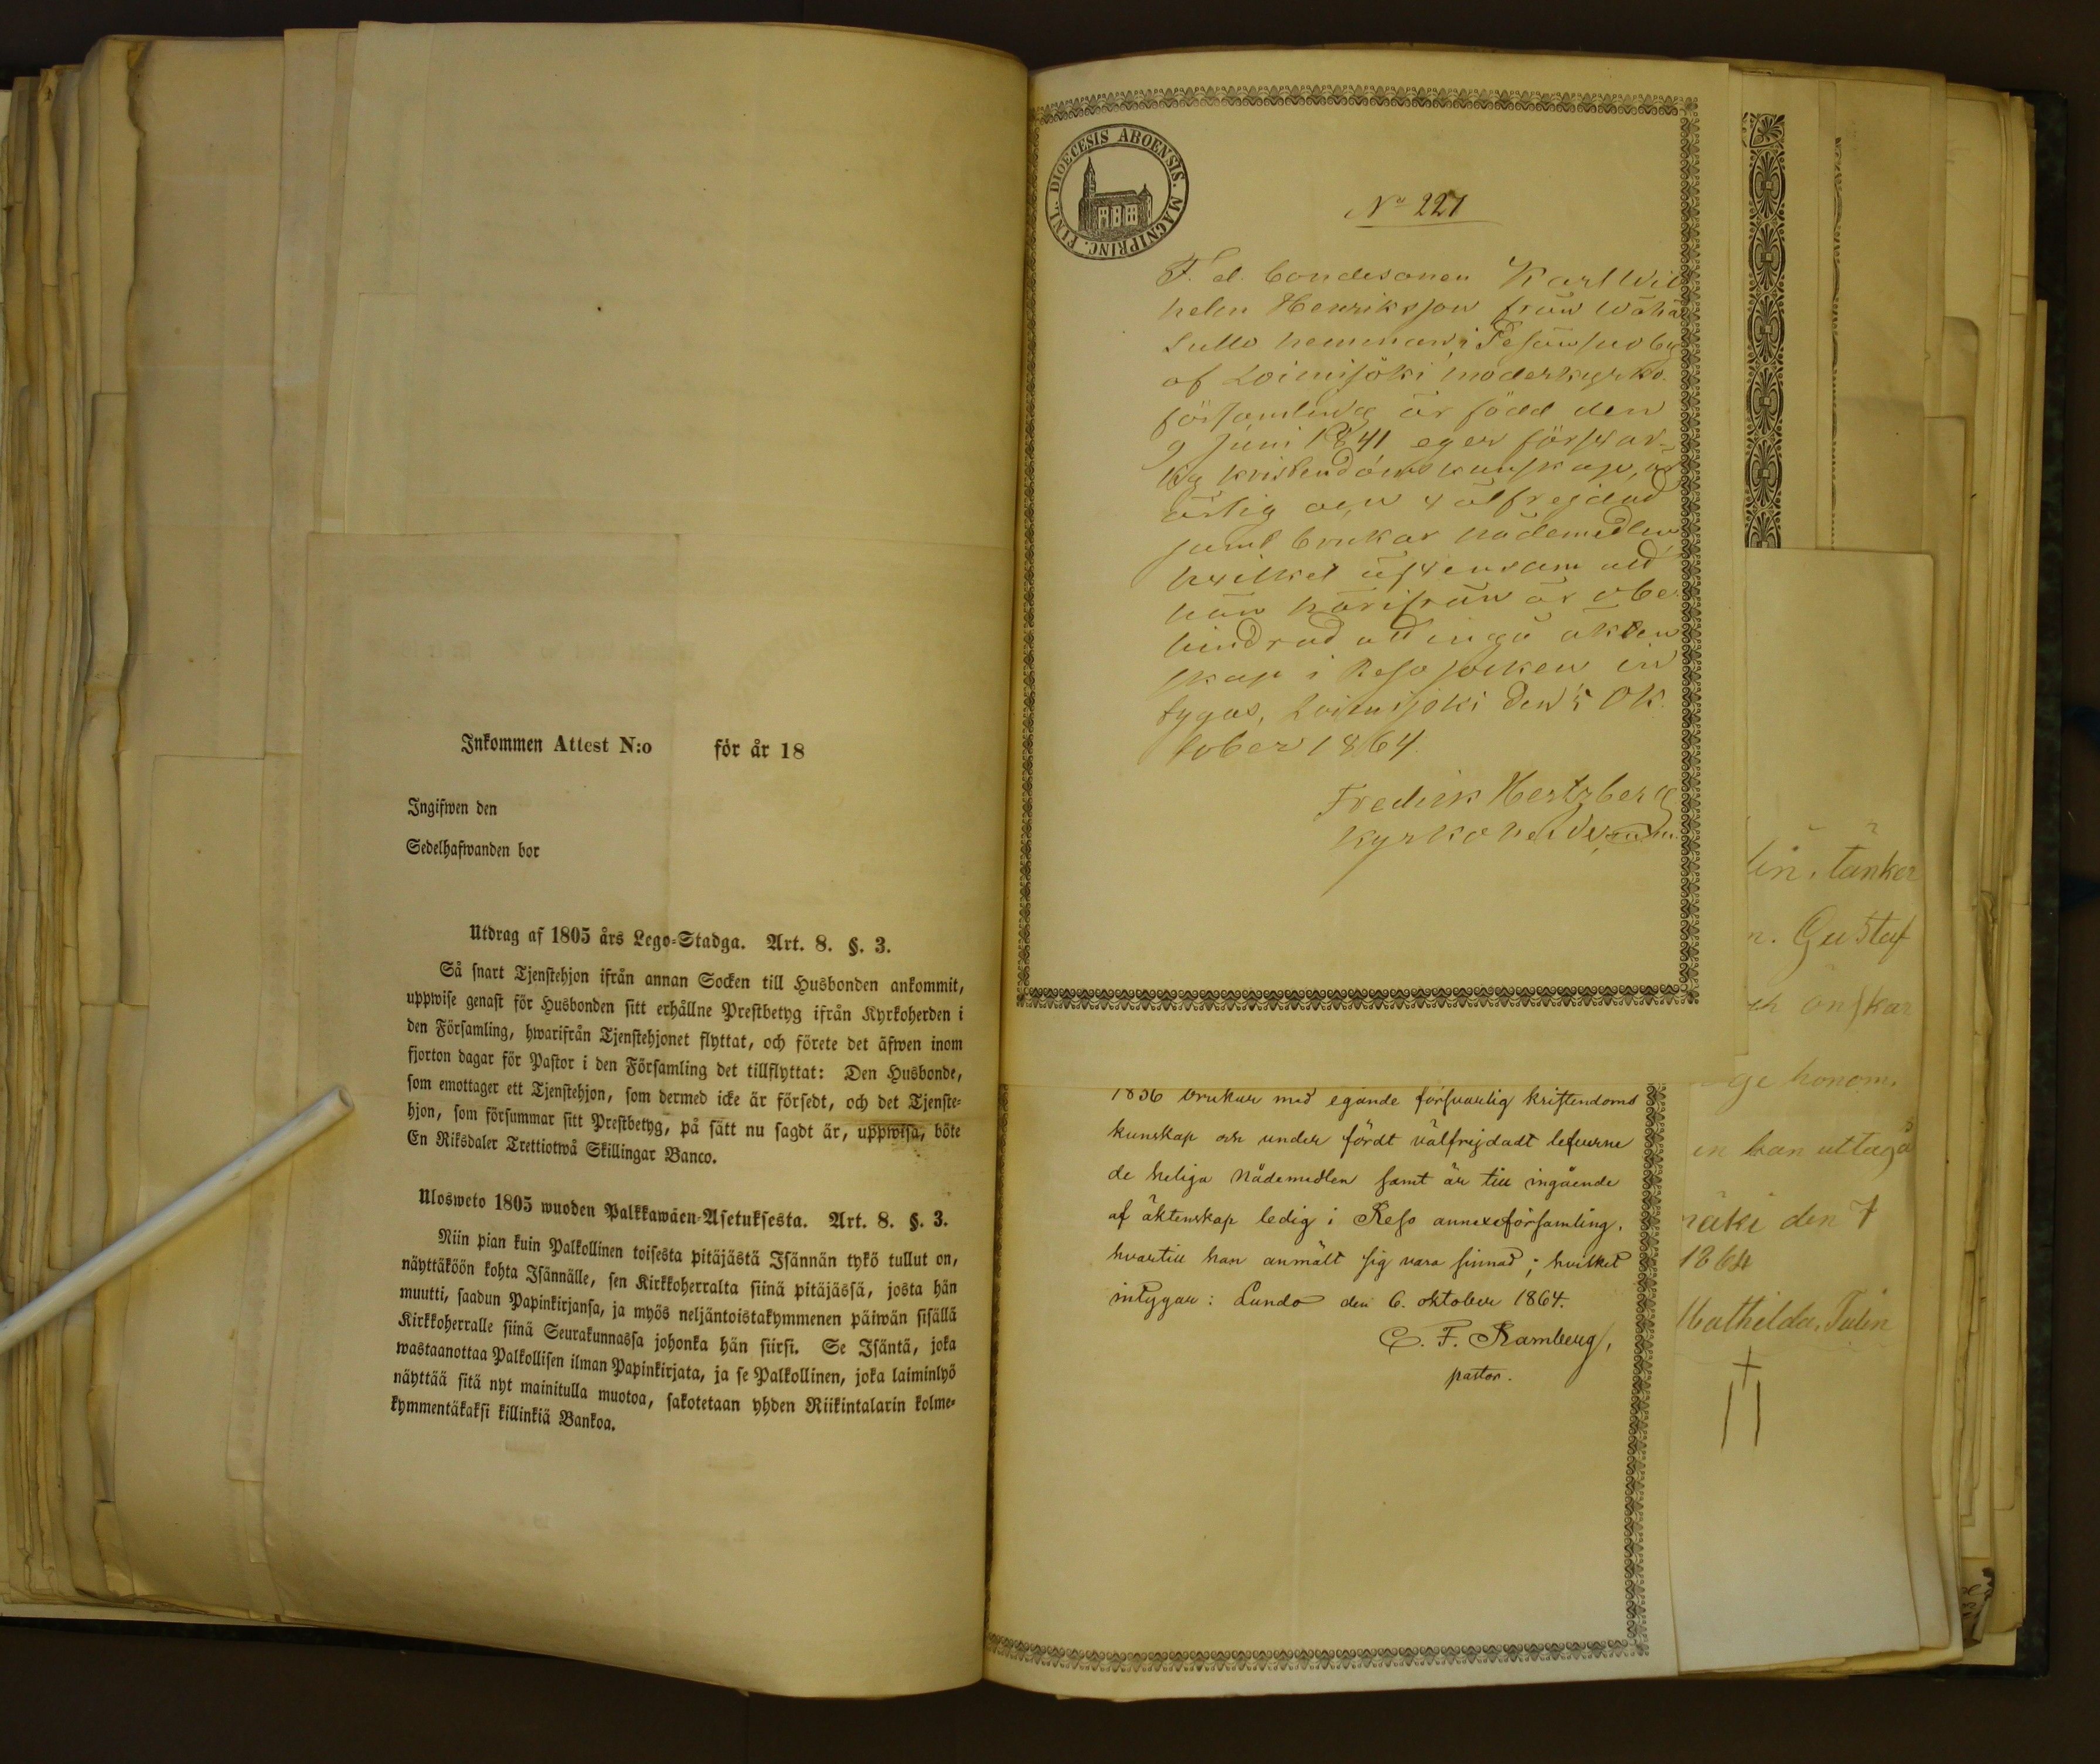 Inkommen Attest N:o för år 18
Ingifwen den
Sedelhafwanden bor
Utdrag af 1805 års Lego-Stadga. Art. 8. §. 3.
Så snart Tjenstehjon ifrån annan Socken till Husbonden ankommit,
uppwise genast för Husbonden sitt erhållne Prestbetyg ifrån Kyrkoherden i
den Församling, hwarifrån Tjenstehjonet flyttat, och förete det äfwen inom
fjorton dagar för Pastor i den Församling det tillflyttat: Den Husbonde,
som emottager ett Tjenstehjon, som dermed icke är försedt, och det Tjenste-
hjon, som försummar sitt Prestbetyg, på sätt nu sagdt är, uppwisa, böte
En Riksdaler Trettiotwå Skillingar Banco.
Ulosweto 1805 wuoden Palkkawäen-Asetuksesta. Art. 8. §. 3.
Niin pian kuin Palkollinen toisesta pitäjästä Isännän tykö tullut on,
näyttäköön kohta Isännälle, sen Kirkkoherralta siinä pitäjässä, josta hän
muutti, saadun Papinkirjansa, ja myös neljäntoistakymmenen päiwän sisällä
Kirkkoherralle siinä Seurakunnassa johonka hän siirsi. Se Isäntä, joka
wastaanottaa Palkollisen ilman Papinkirjata, ja se Palkollinen, joka laiminlyö
näyttää sitä nyt mainitulla muotoa, sakotetaan yhden Riikintalarin kolme-
kymmentäkaksi killinkiä Bankoa.
FINL. DIOECESIS ABOENSIS. MAGNIPRINC.
No 221
F. d. bondesonen Karl Wil
helm Henriksson från Wähä
hemman i by
af Loimijoki moderkyrko-
församling är född den
9 Juni 1841 eger förswar-
lig kristendomskunskap, är
ärlig och wälfrejdad
samt brukar nådemedlen
hwilket äfwensom att
han härifrån är obe
hindrad att ingå äkten
skap i Reso socken in
tygas, Loimijoki den 5 Ok
tober 1864.
Fredrik Hertzberg
Kyrkoherde
1836 brukar med egande försvarlig kristendoms
kunskap och under fördt välfrejdadt lefverne
de heliga nådemedlen samt är till ingående
af äktenskap ledig i Reso annexförsamling,
hvartill han anmält sig vara sinnad; hvilket
intygar: Lundo den 6. oktober 1864.
C. F. Ramberg,
pastor.
lin, tänker
n. Gustaf
önskar
ge honom.
en kan uttaga
mäki den 7
1864
Mathilda Tulin